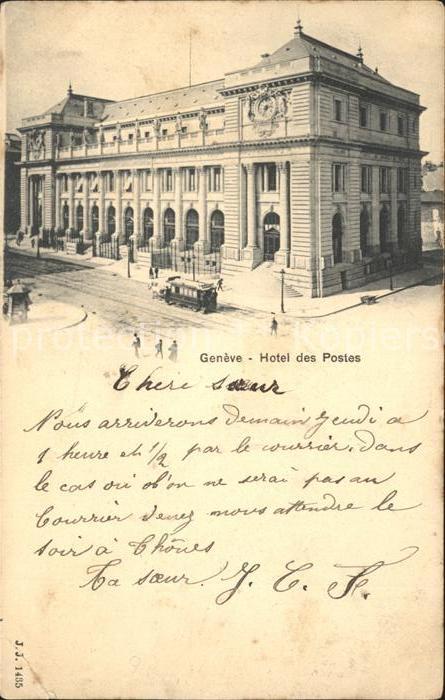 Genève - Hotel des Postes
Cheri sœur
Nous arriverons demain jeudi a
1 heure et 1/2 par le courrier, dans
le cas ou l'on ne serai pas au
Courrier venez nous attendre le
soir à Thônes
Ta sœur. J. C. F.
J.J. 1435